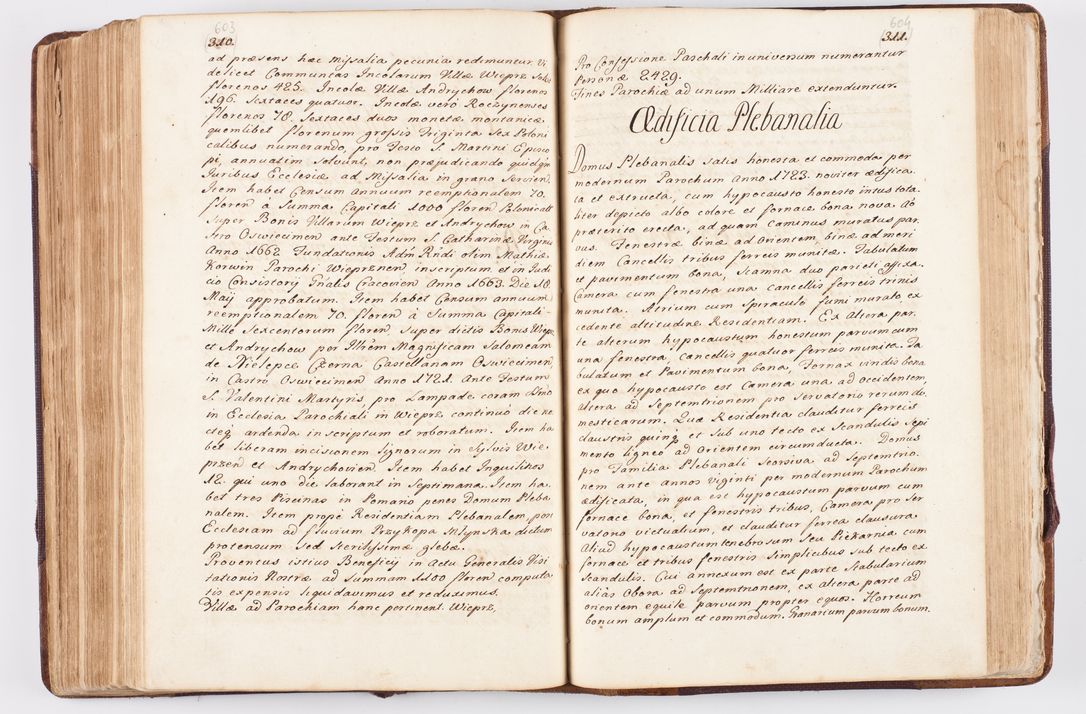 603
310.
ad præsens hæc missalia pecunia redimuntur vi
delicet Communitas Incolarum Villæ Wieprz solvit
florenos 425. Incolæ Villæ Andrychow florenos
196. Sextaces quatuor. Incolæ verò Roczynenses
florenos 78. Sextaces duos monetæ montanicæ
quemlibet florenum grossis triginta sex Poloni
calibus numerando, pro Festo S. Martini Episco
pi, annuatim solvunt, non præjudicando quidqm
Juribus Ecclesiæ ad Missalia in grano servien.
Item habet Censum annuum reemptionalem 70.
floren à Summa Capitali 1000 floren Polonicall
super Bonis Villarum Wieprz et Andrychow in Ca
stro Oswiecimen ante Festum S. Catharinæ Virginis
Anno 1662 Fundationis Adm Rndi olim Mathiæ
Korwin Parochi Wieprznen, inscriptum et in Judi
cio Consistorij Gnalis Cracovien Anno 1663. Die 18.
Maij approbatum. Item habet Censum annuum
reemptionalem 70. floren à Summa Capitali
Mille sexcentorum floren, super dictis Bonis Wieprz
et Andrychow per Illrem Magnificam Salomeam
de Nielepce Czerna Castellanam Oswiecimen
in Castro Oswiecimen Anno 1721. Ante Festum
S. Valentini Martyris, pro Lampade coram Dno
in Ecclesia Parochiali in Wieprz continuò die ne
cteq ardenda inscriptum et roboratum. Item ha
bet liberam incisionem lignorum in sylvis Wie
przen et Andrychovien. Item habet Inquilinos
12. qui uno die laborant in septimana. Item ha
bet tres Piscinas in Pomario penes Domum Pleba
nalem. Item propè Residentiam Plebanalem, pon
Ecclesiam ad fluvium Przykopa Młynska dictum
protensum sed sterilissimæ glebæ.
Proventus istius Beneficij in Actu Generalis Visi
tationis Nostræ ad Summam 1100 floren computa
tis expensis liquidavimus et reduximus.
Villæ ad Parochiam hanc pertinent. Wieprz,
604
311.
Pro Confessione Paschali in universum numerantur
Personæ 2429.
Fines Parochiæ ad unum Milliare extenduntur.
Ædificia Plebanalia
Domus Plebanalis satis honesta et commoda per
modernum Parochum Anno 1723. noviter ædifica
ta et extructa, cum hypocausto honesto intus tota
liter depicto albo colore et fornace bona nova Aô
præterito erecta, ad quam caminus muratus par
vus. Fenestræ binæ ad Orientem, binæ ad meri
diem Cancellis tribus ferreis munitæ. Tabulatum
et pavimentum bona, scamna duo parieti affixa.
Camera cum fenestra una cancellis ferreis trinis
munita. Atrium cum spiraculo fumi murato ex
cedente altitudinē Residentiam. Ex altera par
te alterum hypocaustum honestum parvum cum
una fenestra, cancellis quatuor ferreis munita. Ta
bulatum et Pavimentum bona, Fornax viridis bona
ex quo hypocausto est Camera una ad occidentem,
altera ad septemtrionem pro servatorio rerum do
mesticarum. Quæ Residentia clauditur ferreis
claustris quinq et sub uno tecto ex scandulis sepi
mento ligneo ad Orientem circumducta. Domus
pro Familia Plebanali seorsiva ad septemtrio
nem ante annos viginti per modernum Parochum
ædificata, in qua est hypocaustum parvum cum
fornace bona, et fenestris tribus, Camera pro ser
vatorio victualium, et clauditur ferrea clausura
Aliud hypocaustum tenebrosum seu Piekarnia cum
fornace et tribus fenestris simplicibus sub tecto ex
scandulis. Cui annexum est ex parte stabularium
alias Obora ad septemtrionem, ex altera parte ad
orientem equile parvum propter equos. Horreum
bonum amplum et commodum. Granarium parvum bonum.